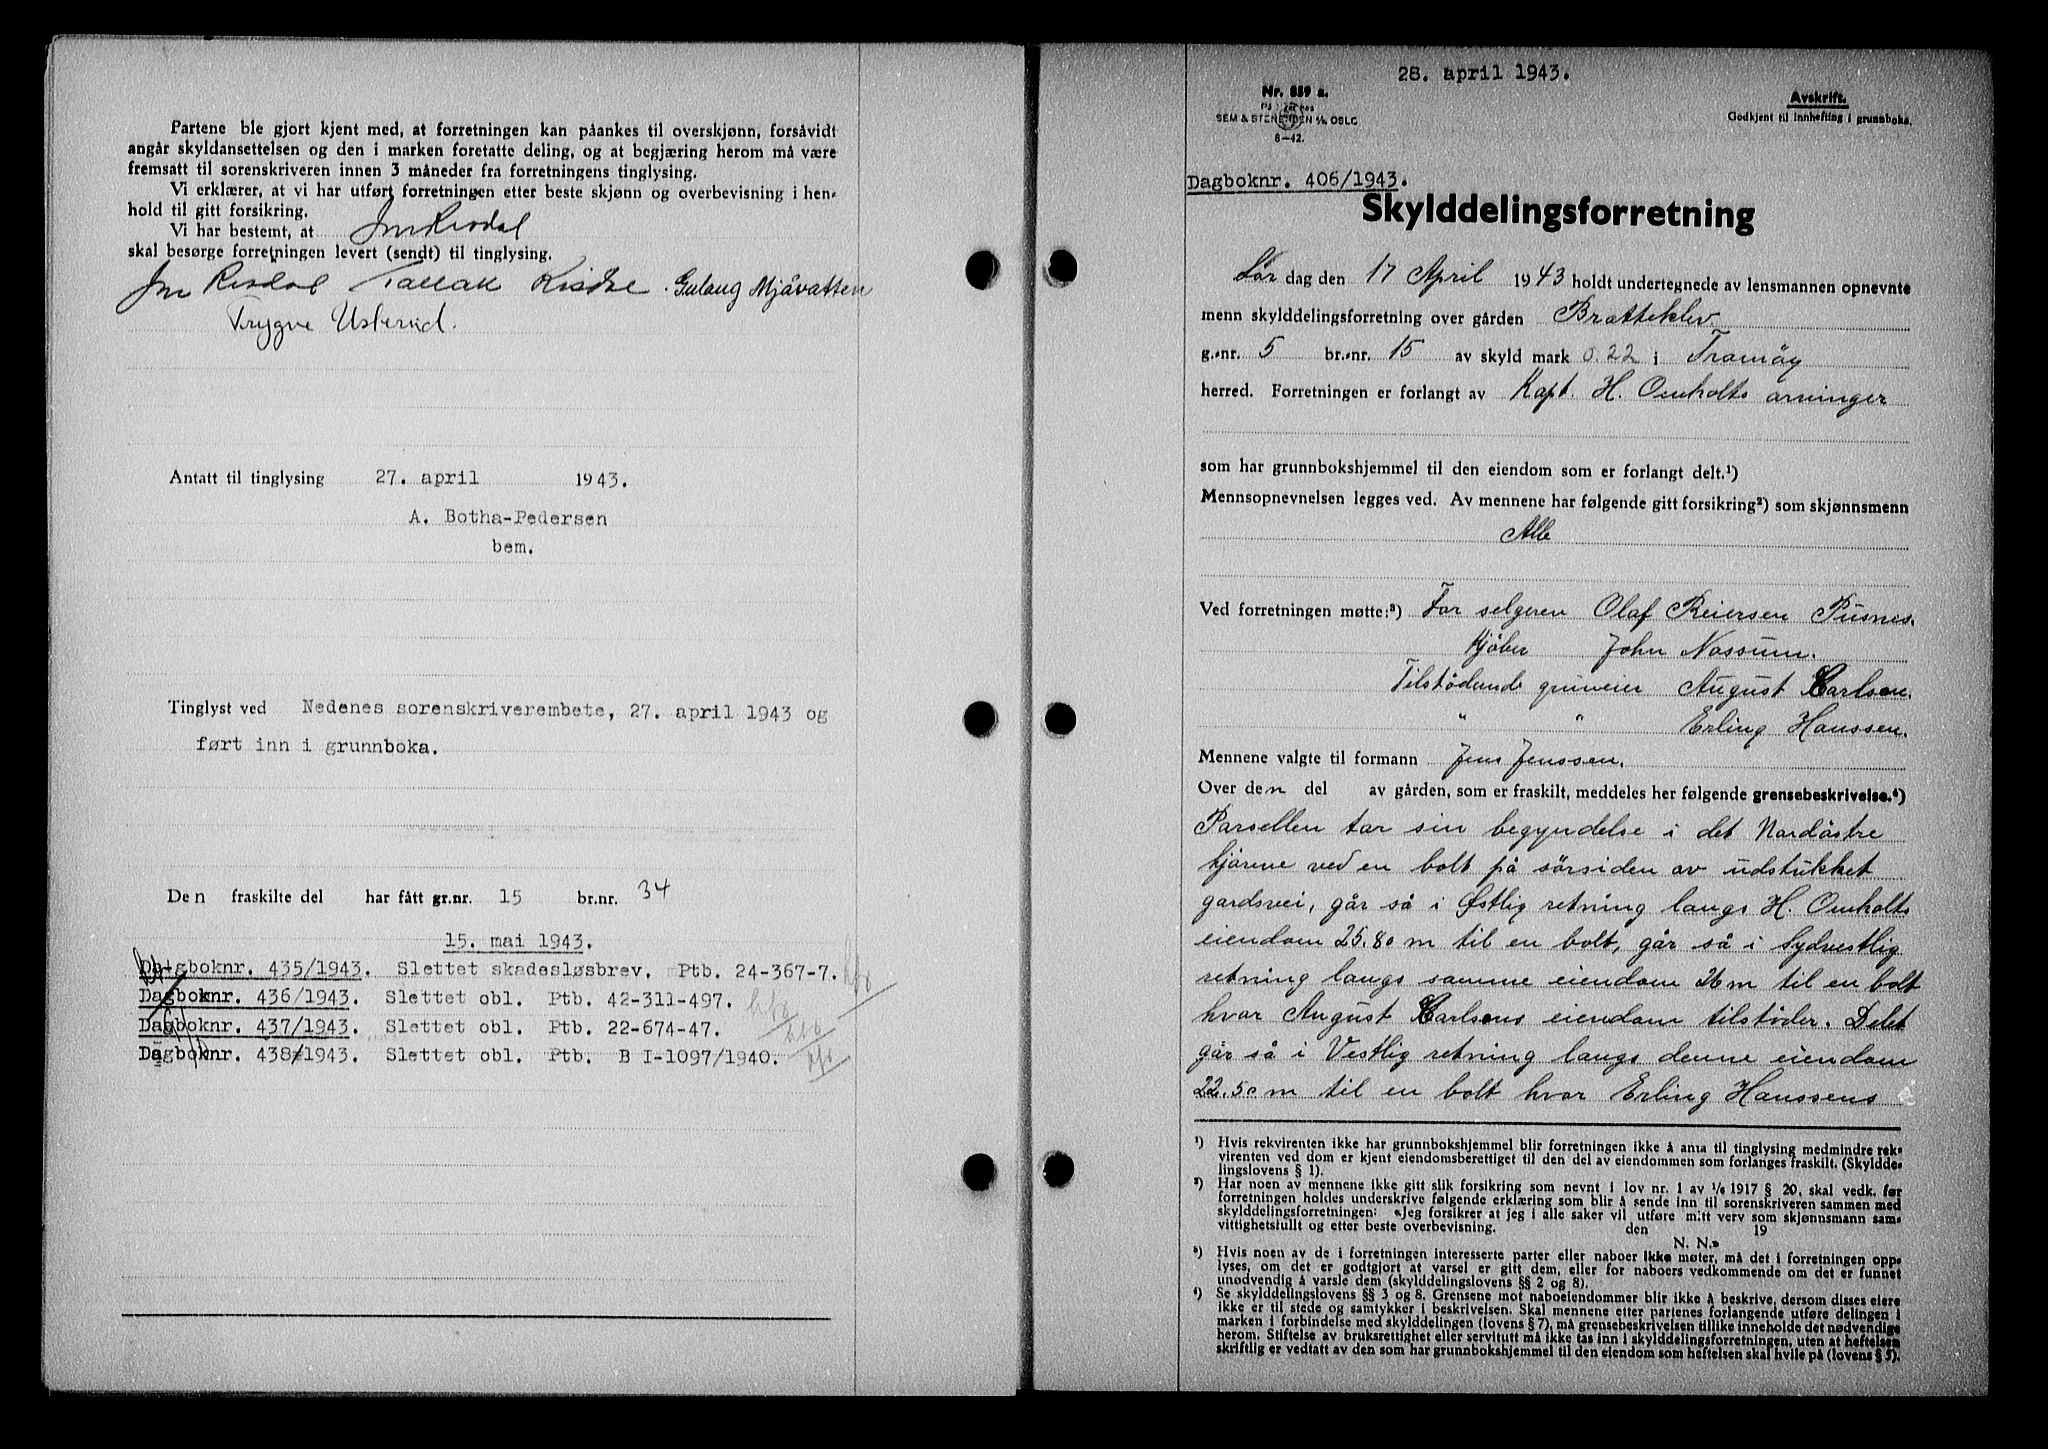 Partene ble gjort kjent med, at forretningen kan påankes til overskjønn, forsåvidt
angår skyldansettelsen og den i marken foretatte deling, og at begjæring herom må være
fremsatt til sorenskriveren innen 3 måneder fra forretningens tinglysing.
Vi erklærer, at vi har utført forretningen etter beste skjønn og overbevisning i hen-
hold til gitt forsikring.
Vi har bestemt, at Jm Risdal
skal besørge forretningen levert (sendt) til tinglysing.
Jm Risdal Tallak Risdal. Gulaug Mjåvatten
Trygve Usterud.
Antatt til tinglysing 27. april 1943.
A. Botha-Pedersen
bem.
Tinglyst ved Nedenes sorenskriverembete, 27. april 1943 og
ført inn i grunnboka.
Den fraskilte del har fått gr.nr. 15 br.nr. 34
15. mai 1943.
Dagboknr. 435/1943. Slettet skadesløsbrev. Ptb. 24-367-7.
Dagboknr. 436/1943. Slettet obl. Ptb. 42-311-497.
Dagboknr. 437/1943. Slettet obl. Ptb. 22-674-47.
Dagboknr. 438/1943. Slettet obl. Ptb. B I-1097/1940.
28. april 1943.
Nr. 859 a.
SEM & STENERSEN A/S OSLO
8-42.
Avskrift.
Godkjent til innhefting i grunnboka.
Dagboknr. 406/1943.
Skylddelingsforretning
Lør dag den 17 April 1943 holdt undertegnede av lensmannen opnevnte
menn skylddelingsforretning over gården Bratteklev
g.-nr. 5 br.-nr. 15 av skyld mark 0.22 i Tromöy
herred. Forretningen er forlangt av Kapt. H. Omholts arvinger
som har grunnbokshjemmel til den eiendom som er forlangt delt.¹)
Mennsopnevnelsen legges ved. Av mennene har følgende gitt forsikring²) som skjønnsmenn
Alle
Ved forretningen møtte:³) For selgeren Olaf Reiersen Pusnes.
Kjöber John Nossum.
Tilstödende gruneier August Carlsen.
" " Erling Hanssen.
Mennene valgte til formann Jens Jenssen.
Over den del av gården, som er fraskilt, meddeles her følgende grensebeskrivelse.⁴)
Parsellen tar sin begyndelse i det Nordöstre
hjörne ved en bolt på sörsiden av udstukket
gardsvei, går så i Østlig retning langs H. Omholts
eiendom 25.80 m til en bolt, går så i Sydvestlig
retning langs samme eiendom 26 m til en bolt
hvor August Carlsens eiendom tilstöder. Delet
går så i Vestlig retning langs denne eiendom
22.50 m til en bolt hvor Erling Hanssens
¹) Hvis rekvirenten ikke har grunnbokshjemmel blir forretningen ikke å anta til tinglysing medmindre rek-
virenten ved dom er kjent eiendomsberettiget til den del av eiendommen som forlanges fraskilt. (Skyldde-
lingslovens § 1).
²) Har noen av mennene ikke gitt slik forsikring som nevnt i lov nr. 1 av 1/6 1917 § 20, skal vedk. før
forretningen holdes underskrive følgende erklæring som blir å sende inn til sorenskriveren sammen med
skylddelingsforretningen: «Jeg forsikrer at jeg i alle saker vil utføre mitt verv som skjønnsmann sam-
vittighetsfullt og etter beste overbevisning. den 19
N. N.»
³) Hvis noen av de i forretningen interesserte parter eller naboer ikke møter, må det i forretningen opp-
lyses, om det er godtgjort at varsel er gitt dem, eller for naboers vedkommende om det er funnet
unødvendig å varsle dem (skylddelingslovens §§ 2 og 8).
⁴) Se skylddelingslovens §§ 3 og 8. Grensene mot naboeiendommer blir ikke å beskrive, dersom disses eiere
ikke er til stede og samtykker i beskrivelsen. Skal mennene etter partenes forlangende utføre delingen i
marken i forbindelse med skylddelingen (lovens § 7), må grensebeskrivelsen tillike inneholde det nødvendige
herom. Stiftelse av bruksrettighet eller servitutt må ikke tas inn i skylddelingsforretningen, uten at heftelsen
skriftlig er vedtatt av den som har grunnbokshjemmel til den eiendom som heftelsen skal hvile på (lovens § 5).